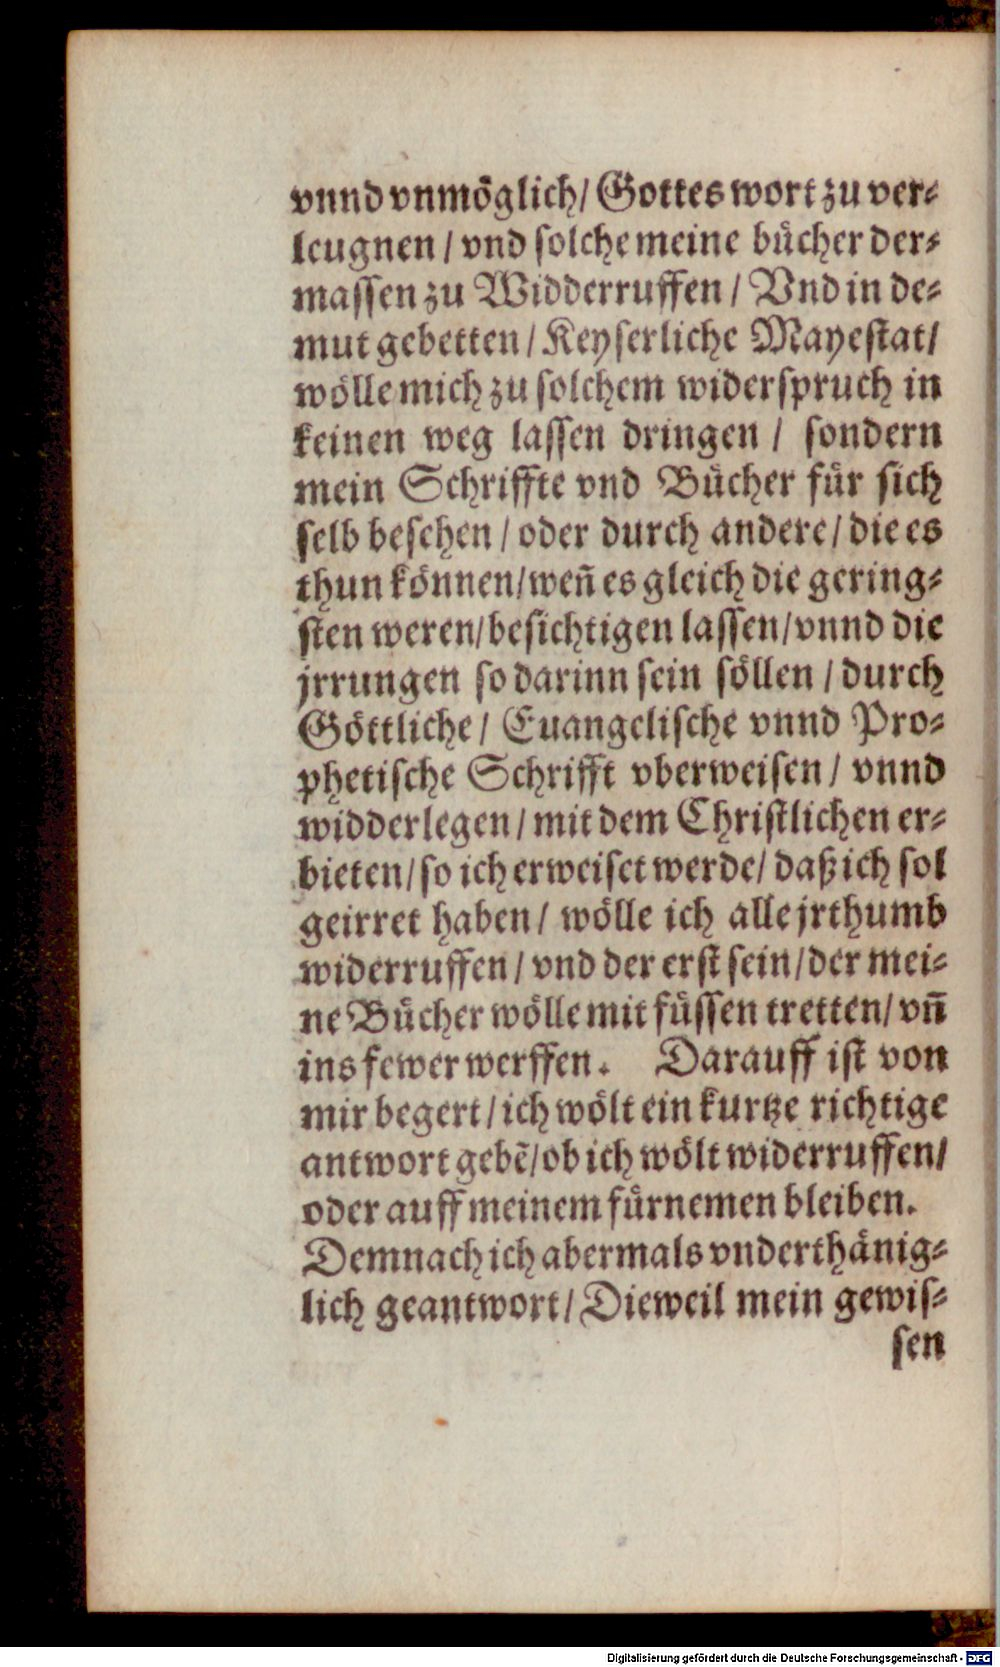 vnnd vnmöglich/ Gottes wort zu ver⸗
leugnen / vnd solche meine bücher der⸗
massen zu Widderruffen / Vnd in de⸗
mut gebetten / Keyserliche Mayestat/
wölle mich zu solchem widerspruch in
keinen weg lassen dringen / sondern
mein Schriffte vnd Bücher für sich
selb besehen / oder durch andere / die es
thun können/weñ es gleich die gering⸗
sten weren/besichtigen lassen/vnnd die
jrrungen so darinn sein söllen / durch
Göttliche/ Euangelische vnnd Pro⸗
phetische Schrifft vberweisen / vnnd
widderlegen / mit dem Christlichen er⸗
bieten/ so ich erweiset werde/ daß ich sol
geirret haben/ wölle ich alle jrthumb
widerruffen/ vnd der erst sein/der mei⸗
ne Bücher wölle mit füssen tretten/ vñ
ins fewer werffen. Darauff ist von
mir begert/ ich wölt ein kurtze richtige
antwort gebẽ/ob ich wölt widerruffen/
oder auff meinem fürnemen bleiben.
Demnach ich abermals vnderthänig⸗
lich geantwort/ Dieweil mein gewis⸗
sen
Digitalisierung gefördert durch die Deutsche Forschungsgemeinschaft - DFG